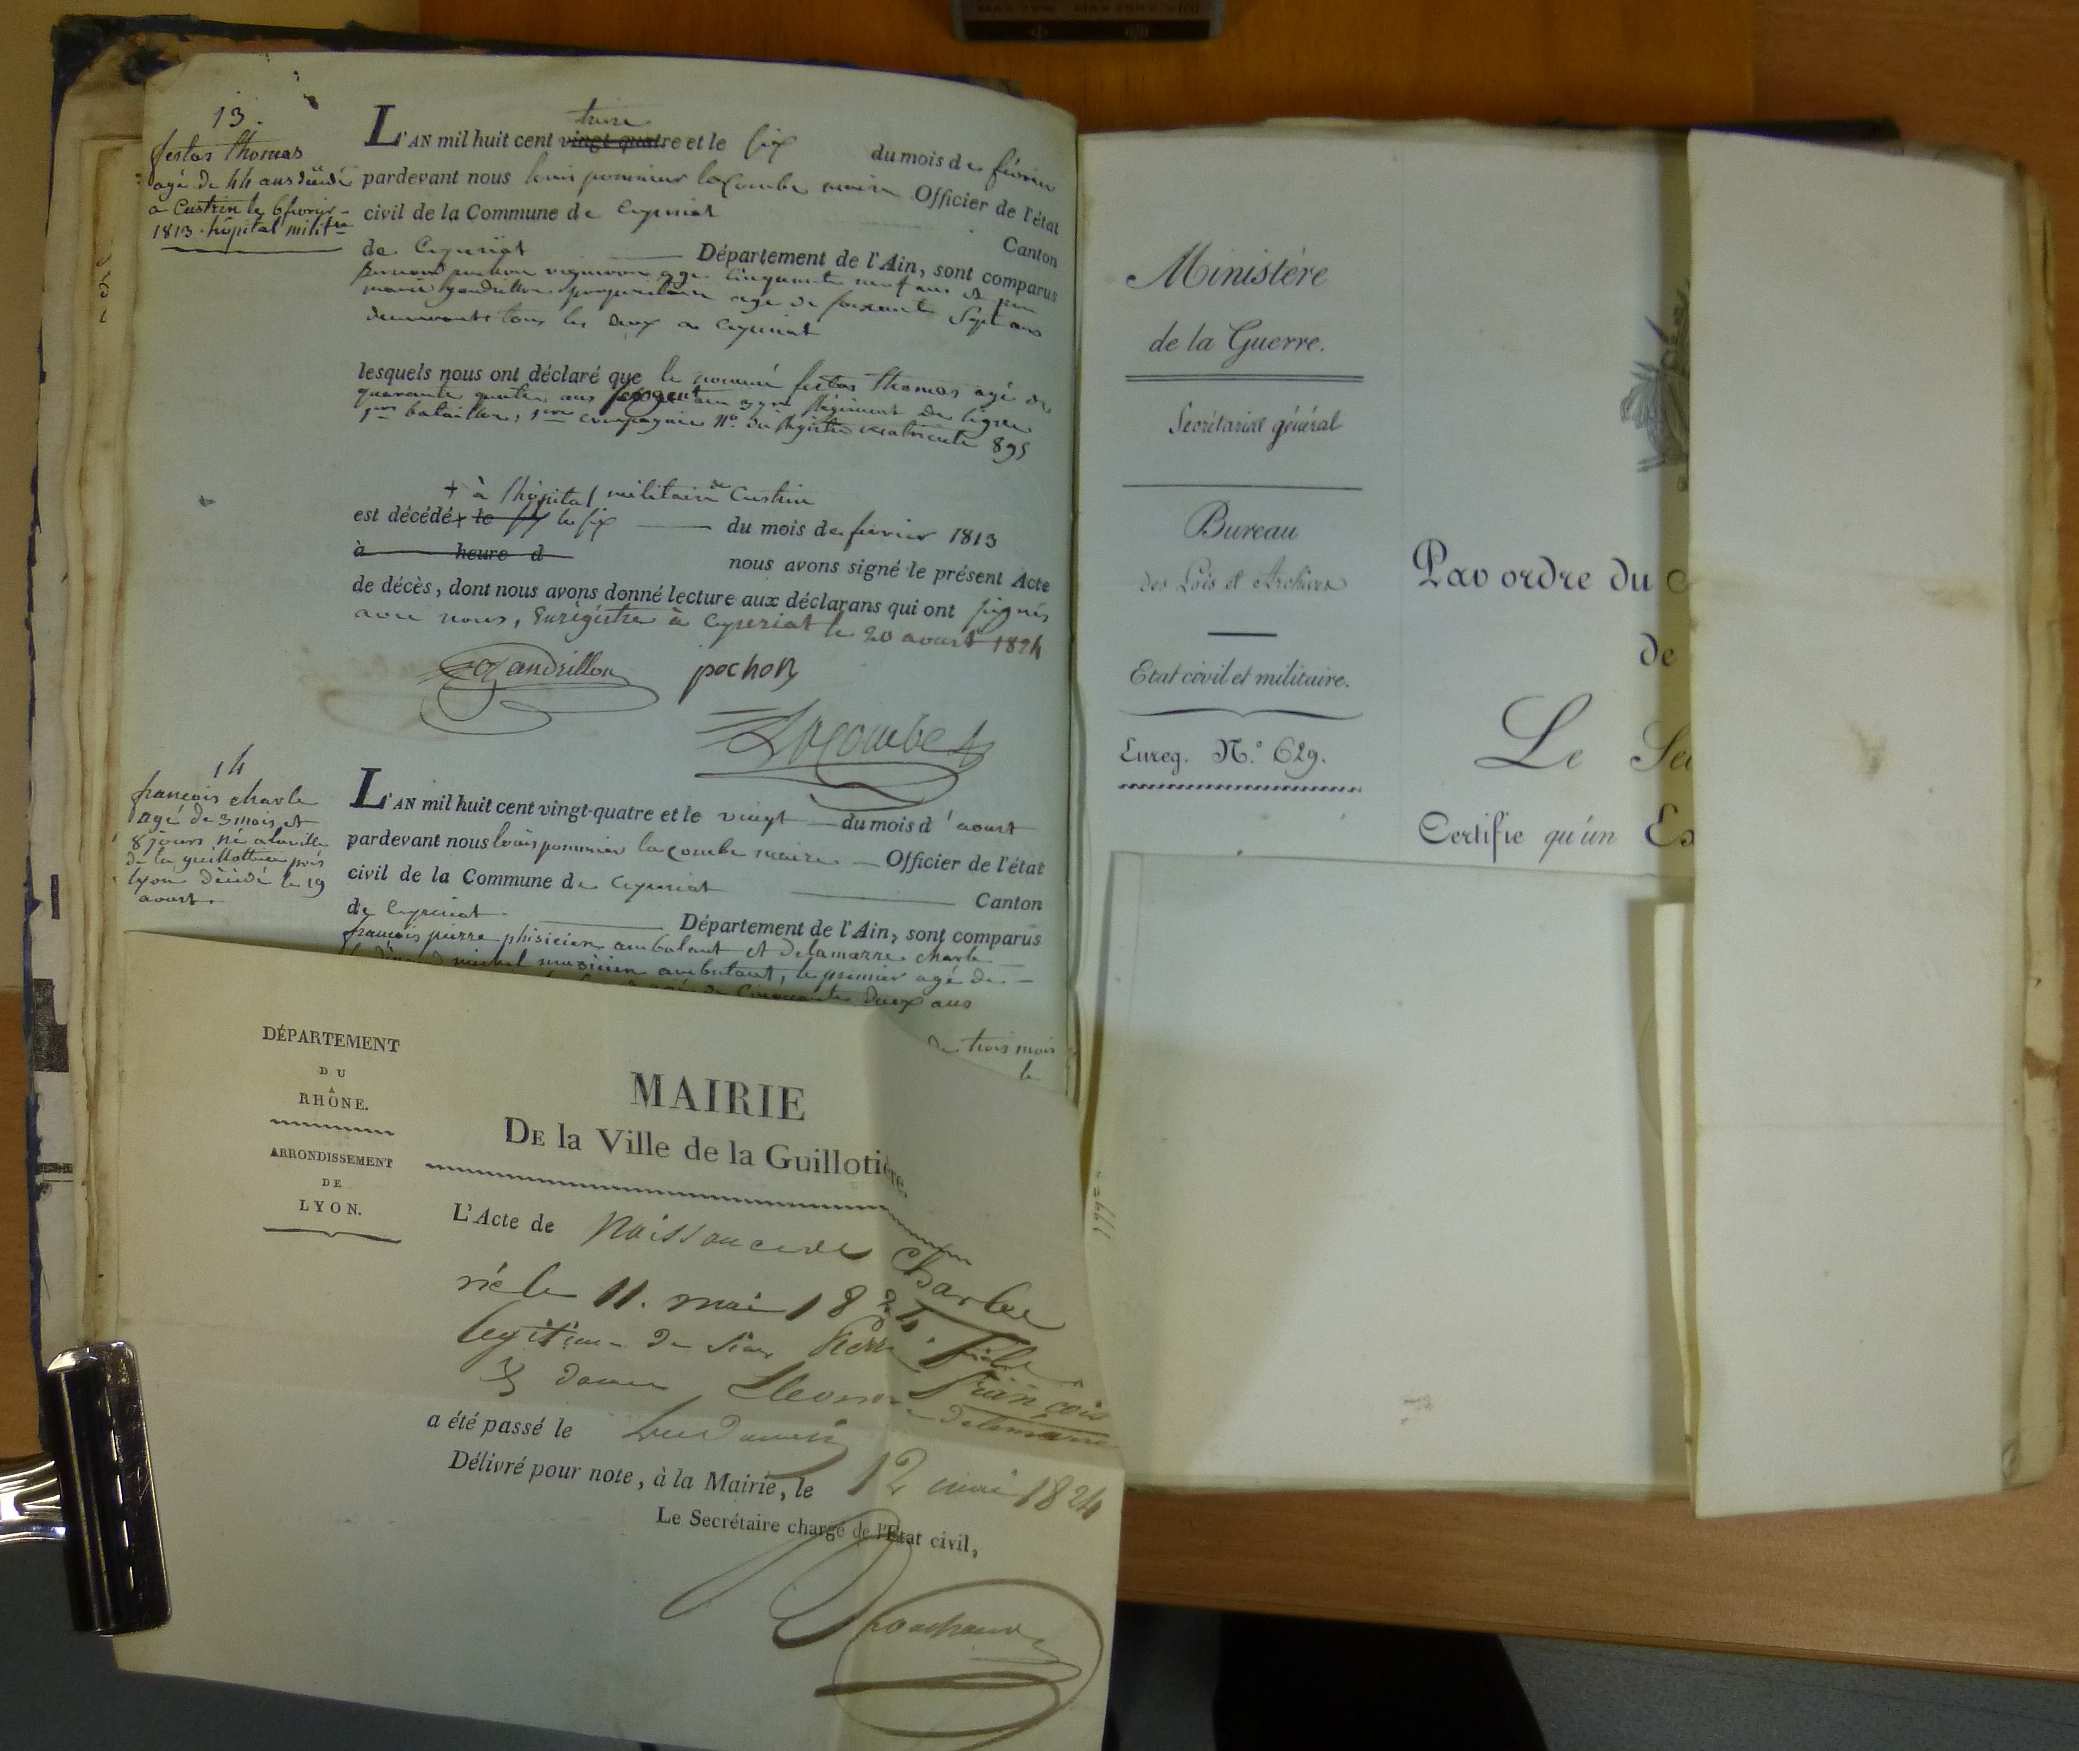 13.
festas Thomas
agé de 44 ans décédé
a Custrin le 6 fevrier
1813. hôpital militre
L'AN mil huit cent treize vingt-quatre et le six du mois de février
pardevant nous louis pommier lacombe maire Officier de l'état
civil de la Commune de Ceyzeriat Canton
de Ceyzeriat Département de l'Ain, sont comparus
pochon vigneron agé cinquante neuf ans
gandrillon propriétaire agé de soixante Sept ans
demeurants tous les deux a Ceyzeriat
lesquels nous ont déclaré que le nommé festas Thomas agé de
quarante quatre ans sergent au Régiment de ligne
1er bataillon, 1ere compagnie No. du Registre matricule 895
+ à l'hôpital militaire de Custrin
est décédé + le six le six du mois de fevrier 1813
à heure d nous avons signé le présent Acte
de décès, dont nous avons donné lecture aux déclarans qui ont signés
avec nous, Enregistré à Ceyzeriat le 20 aoust 1824
gandrillon pochon
Lacombe
14
françois charle
agé de 3 mois et
8 jours né a la ville
de la guillottiere près
lyon décédé le 19
aoust.
L'AN mil huit cent vingt-quatre et le vingt du mois d'aoust
pardevant nous louis pommier lacombe maire Officier de l'état
civil de la Commune de Ceyzeriat Canton
de Ceyzeriat Département de l'Ain, sont comparus
françois pierre phisicien ambulant et delamarre charle
michel musicien ambulant, le premier agé de
cinquante deux ans
de trois mois
le
DÉPARTEMENT
DU
RHÔNE.
ARRONDISSEMENT
DE
LYON.
MAIRIE
DE la Ville de la Guillotière.
L'Acte de Naissance de Charles
né le 11. mai 1824. fils
legitime de Sieur Pierre François
& dame Eleonore delamarre
a été passé le
Délivré pour note, à la Mairie, le 12 mai 1824
Le Secrétaire chargé de l'Etat civil,
Ministère
de la Guerre.
Secrétariat général
Bureau
des Lois et Archives
Etat civil et militaire.
Enreg. N.° 629.
Par ordre du
de
Le Sec
Certifie qu'un Ex